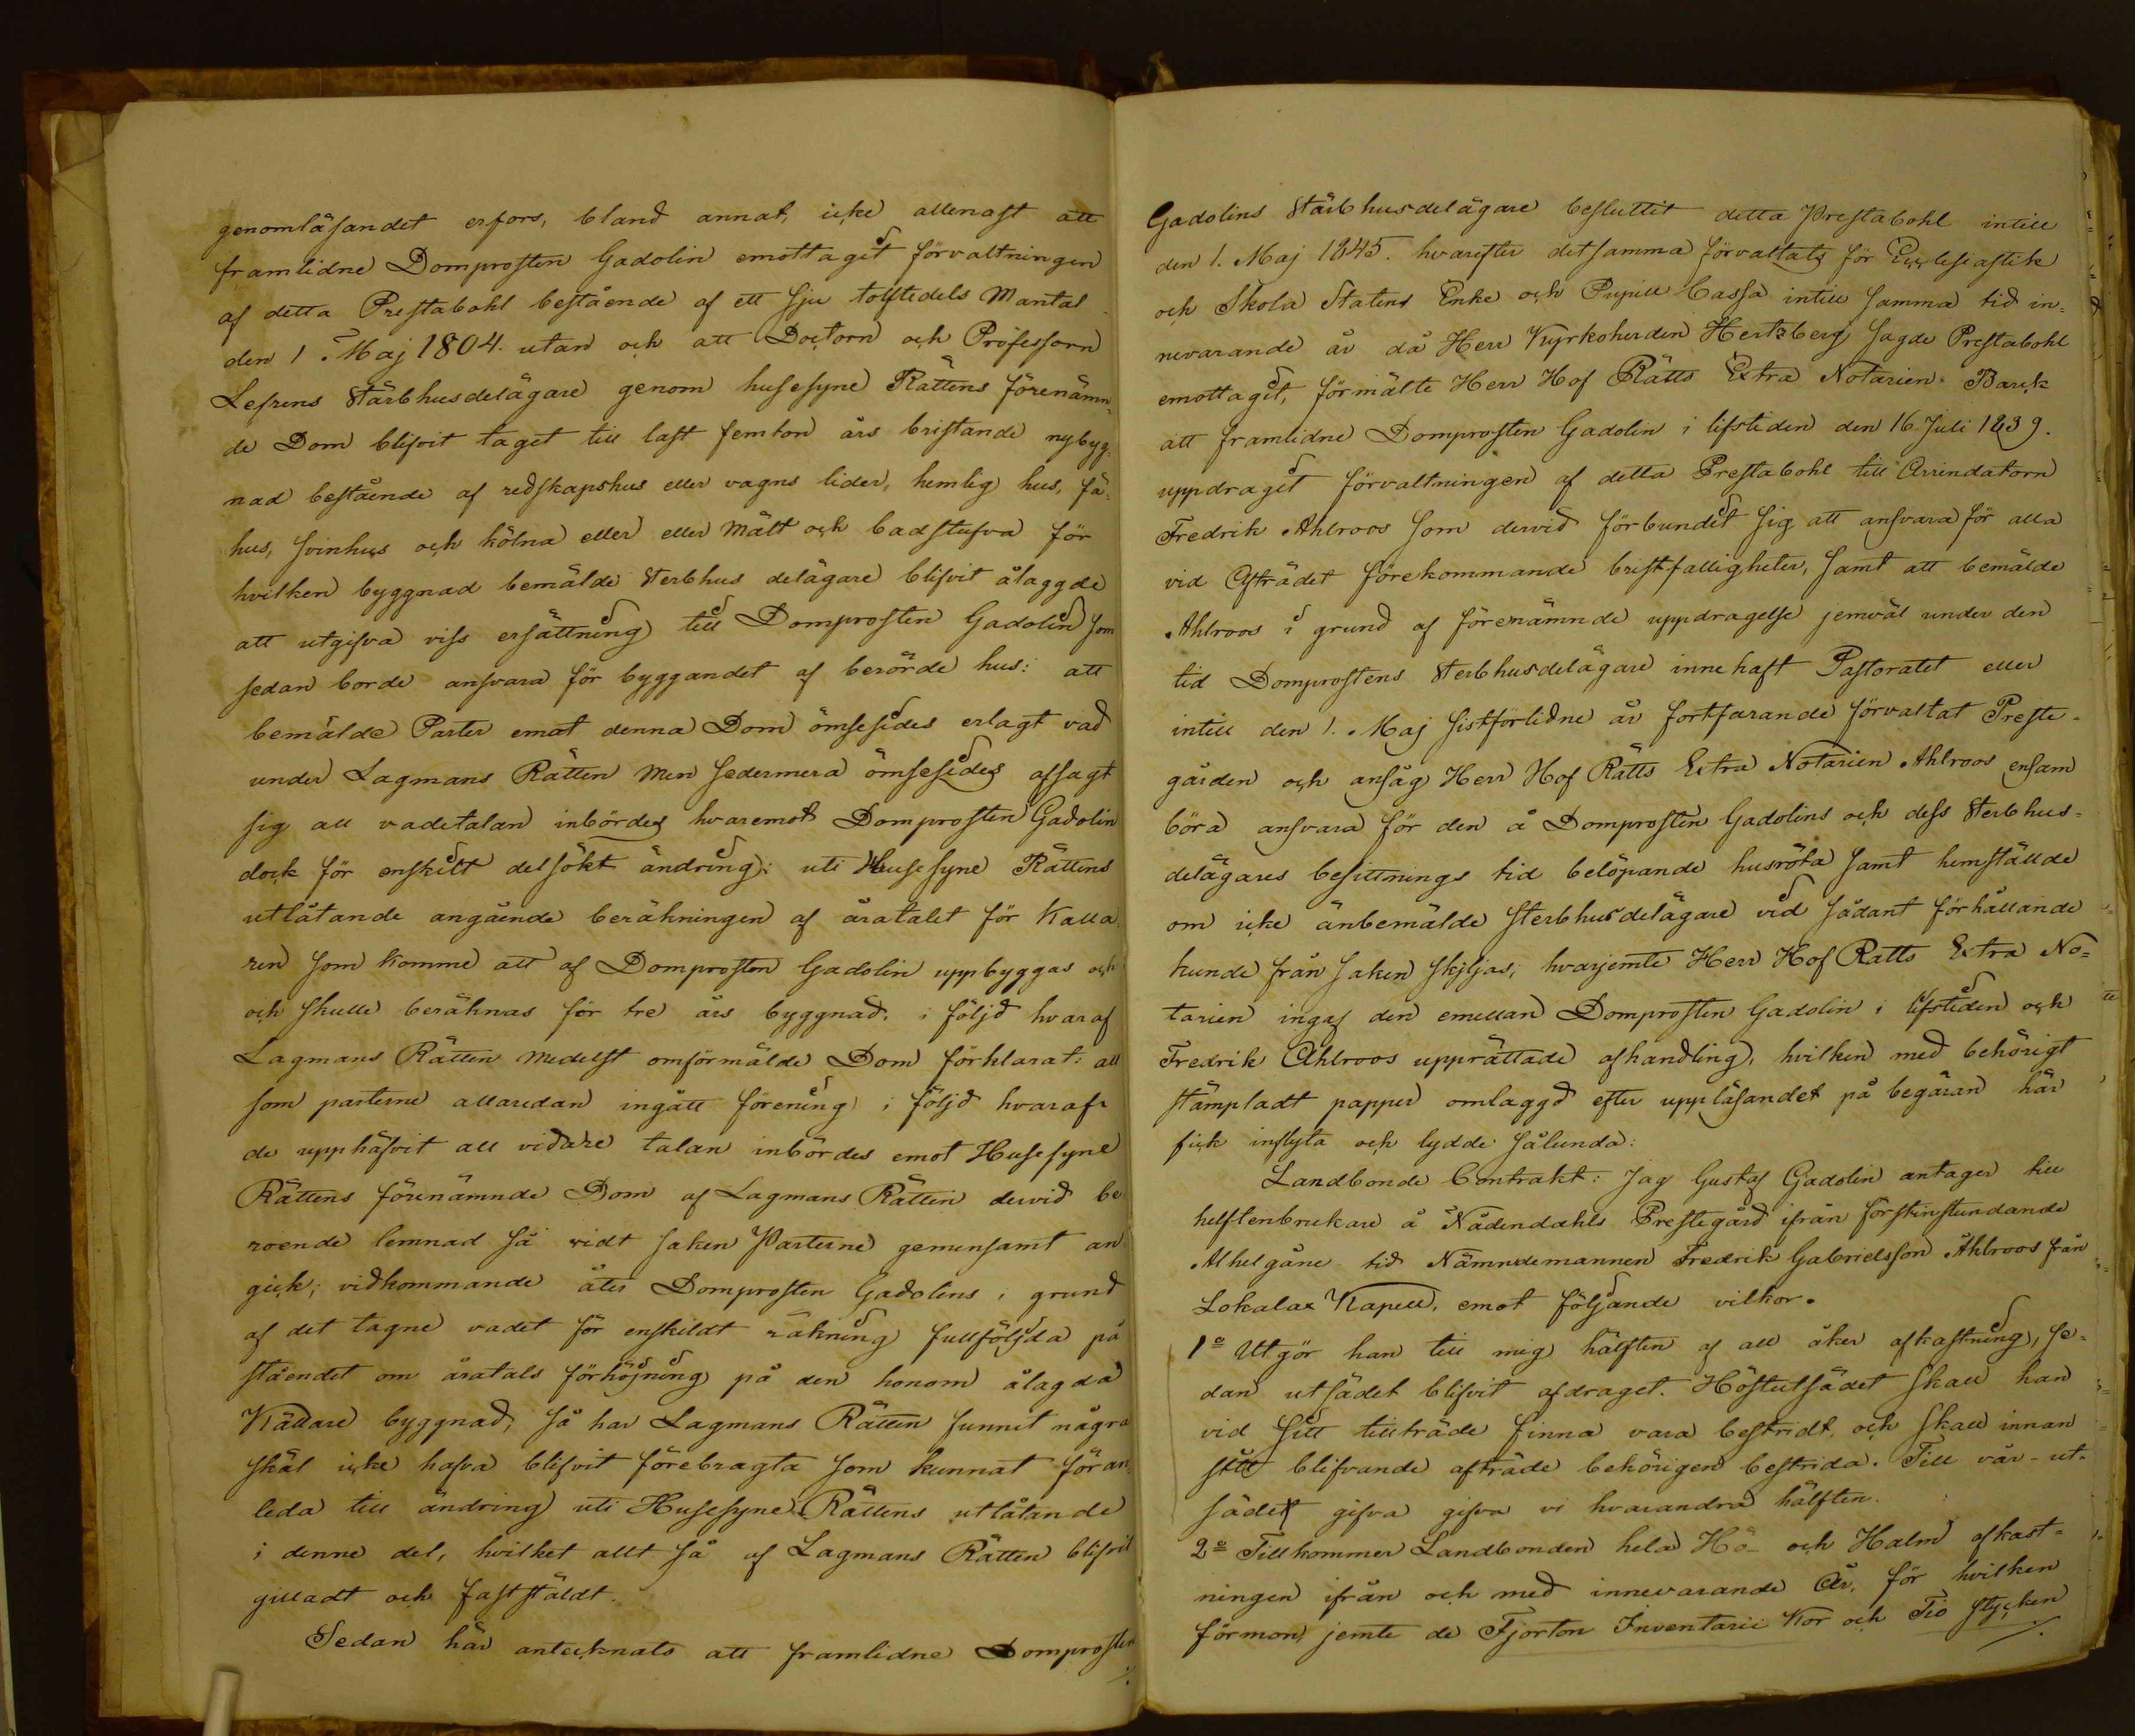 genomläsandet erfors, bland annat, icke allenast att
framlidne Domprosten Gadolin emottagit förvaltningen
af detta Prestabohl bestående af ett sju tolftedels Mantal
den 1 Maj 1804. utan och att Doctorn och Professorn
Lefrens Stärbhusdelägare genom husesyne Rättens förenämn-
de Dom blifvit taget till last femton års bristande nybyg-
nad bestående af redskapshus eller vagns lider, hemlig hus, fä-
hus, svinhus och kölna eller eller Mält och badstufva för
hvilken byggnad bemälde Sterbhus delägare blifvit ålaggde
att utgifva viss ersättning till Domprosten Gadolin som
sedan borde ansvara för byggandet af berörde hus: att
bemälde Parter emot denna Dom ömsesides erlagt vad
under Lagmans Rätten men sedermera ömsesides afsagt
sig all vadetalan inbördes hvaremot Domprosten Gadolin
dock för enskilt del sökt ändring: uti Husesyne Rättens
utlåtande angående beräkningen af åratalet för Källa
ren som komme att af Domprosten Gadolin uppbyggas och
och skulle beräknas för tre års byggnad, i följd hvaraf
Lagmans Rätten medelst omförmälde Dom förklarat: all
som parterne allaredan ingått förening i följd hvaraf
de upphäfvit all vidare talan inbördes emot Husesyne
Rättens förenämnde Dom af Lagmans Rätten dervid be
roende lemnad så vidt saken Parterne gemensamt an
gick; vidkommande åter Domprosten Gadolins i grund
af det tagne vadet för enskildt räkning fullföljda på
ståendet om åratals förhöjning på den honom ålagda
Källare byggnad, så har Lagmans Rätten funnit några
skäl icke hafva blifvit förebragta som kunnat föran-
leda till ändring uti Husesyne Rättens utlåtande
i denne del, hvilket allt så af Lagmans Rätten blifvit
gilladt och fastställdt.
Sedan här antecknats att framlidne Domprosten
Gadolins Stärbhusdelägare besluttit detta Prestabohl intill
den 1. Maj 1845. hvarefter detsamma förvaltats för Ecclesiastik
och Skola Statens Enke och Pupill Cassa intill samma tid in-
nevarande år då Herr Kyrkoherden Hertzberg sagde Prestabohl
emottagit, förmälte Herr Hof Rätts Extra Notarien Barck
att framlidne Domprosten Gadolin i lifstiden den 16. Juli 1839.
uppdragit förvaltningen af detta Prestabohl till Arrindatorn
Fredrik Ahlroos som dervid förbundit sig att ansvara för alla
vid Afträdet förekommande bristfälligheter, samt att bemälde
Ahlroos i grund af förenämnde uppdragelse jemväl under den
tid Domprostens Sterbhusdelägare innehaft Pastoratet eller
intill den 1. Maj sistförlidne år fortfarande förvaltat Preste-
gården och ansåg Herr Hof Rätts Extra Notarien Ahlroos ensam
böra ansvara för den å Domprosten Gadolins och dess Sterbhus-
delägares besittnings tid belöpande husröta samt hemställde
om icke änbemälde sterbhusdelägare vid sådant förhållande
kunde från saken skiljas; hvarjemte Herr Hof Rätts Extra No-
tarien ingaf den emellan Domprosten Gadolin i lifstiden och
Fredrik Ahlroos upprättade afhandling, hvilken med behörigt
stämpladt papper omlaggd efter uppläsandet på begäran här
fick inflyta och lydde sålunda:
Landbonde Contrakt: Jag Gustaf Gadolin antager till
helftenbrukare å Nådendahls Prestegård ifrån förstinstundande
Alhelgäne tid Nämndemannen Fredrik Gabrielsson Åhlroos från
Lokalax Kapell, emot följande vilkor.
1o Utgör han till mig hälften af all åker afkastning, se-
dan utsädet blifvit afdraget. Höstutsädet skall han
vid sitt tillträde finna vara bestridt, och skall innan
sitt blifvande afträde behörigen bestrida. Till vår-ut-
sädet gifva gifva vi hvarandra hälften.
2o Tillkommer Landbonden hela Hö- och Halm afkast-
ningen ifrån och med innevarande År, för hvilken
förmon, jemte de Fjorton Inventarii Kor och Tio stycken